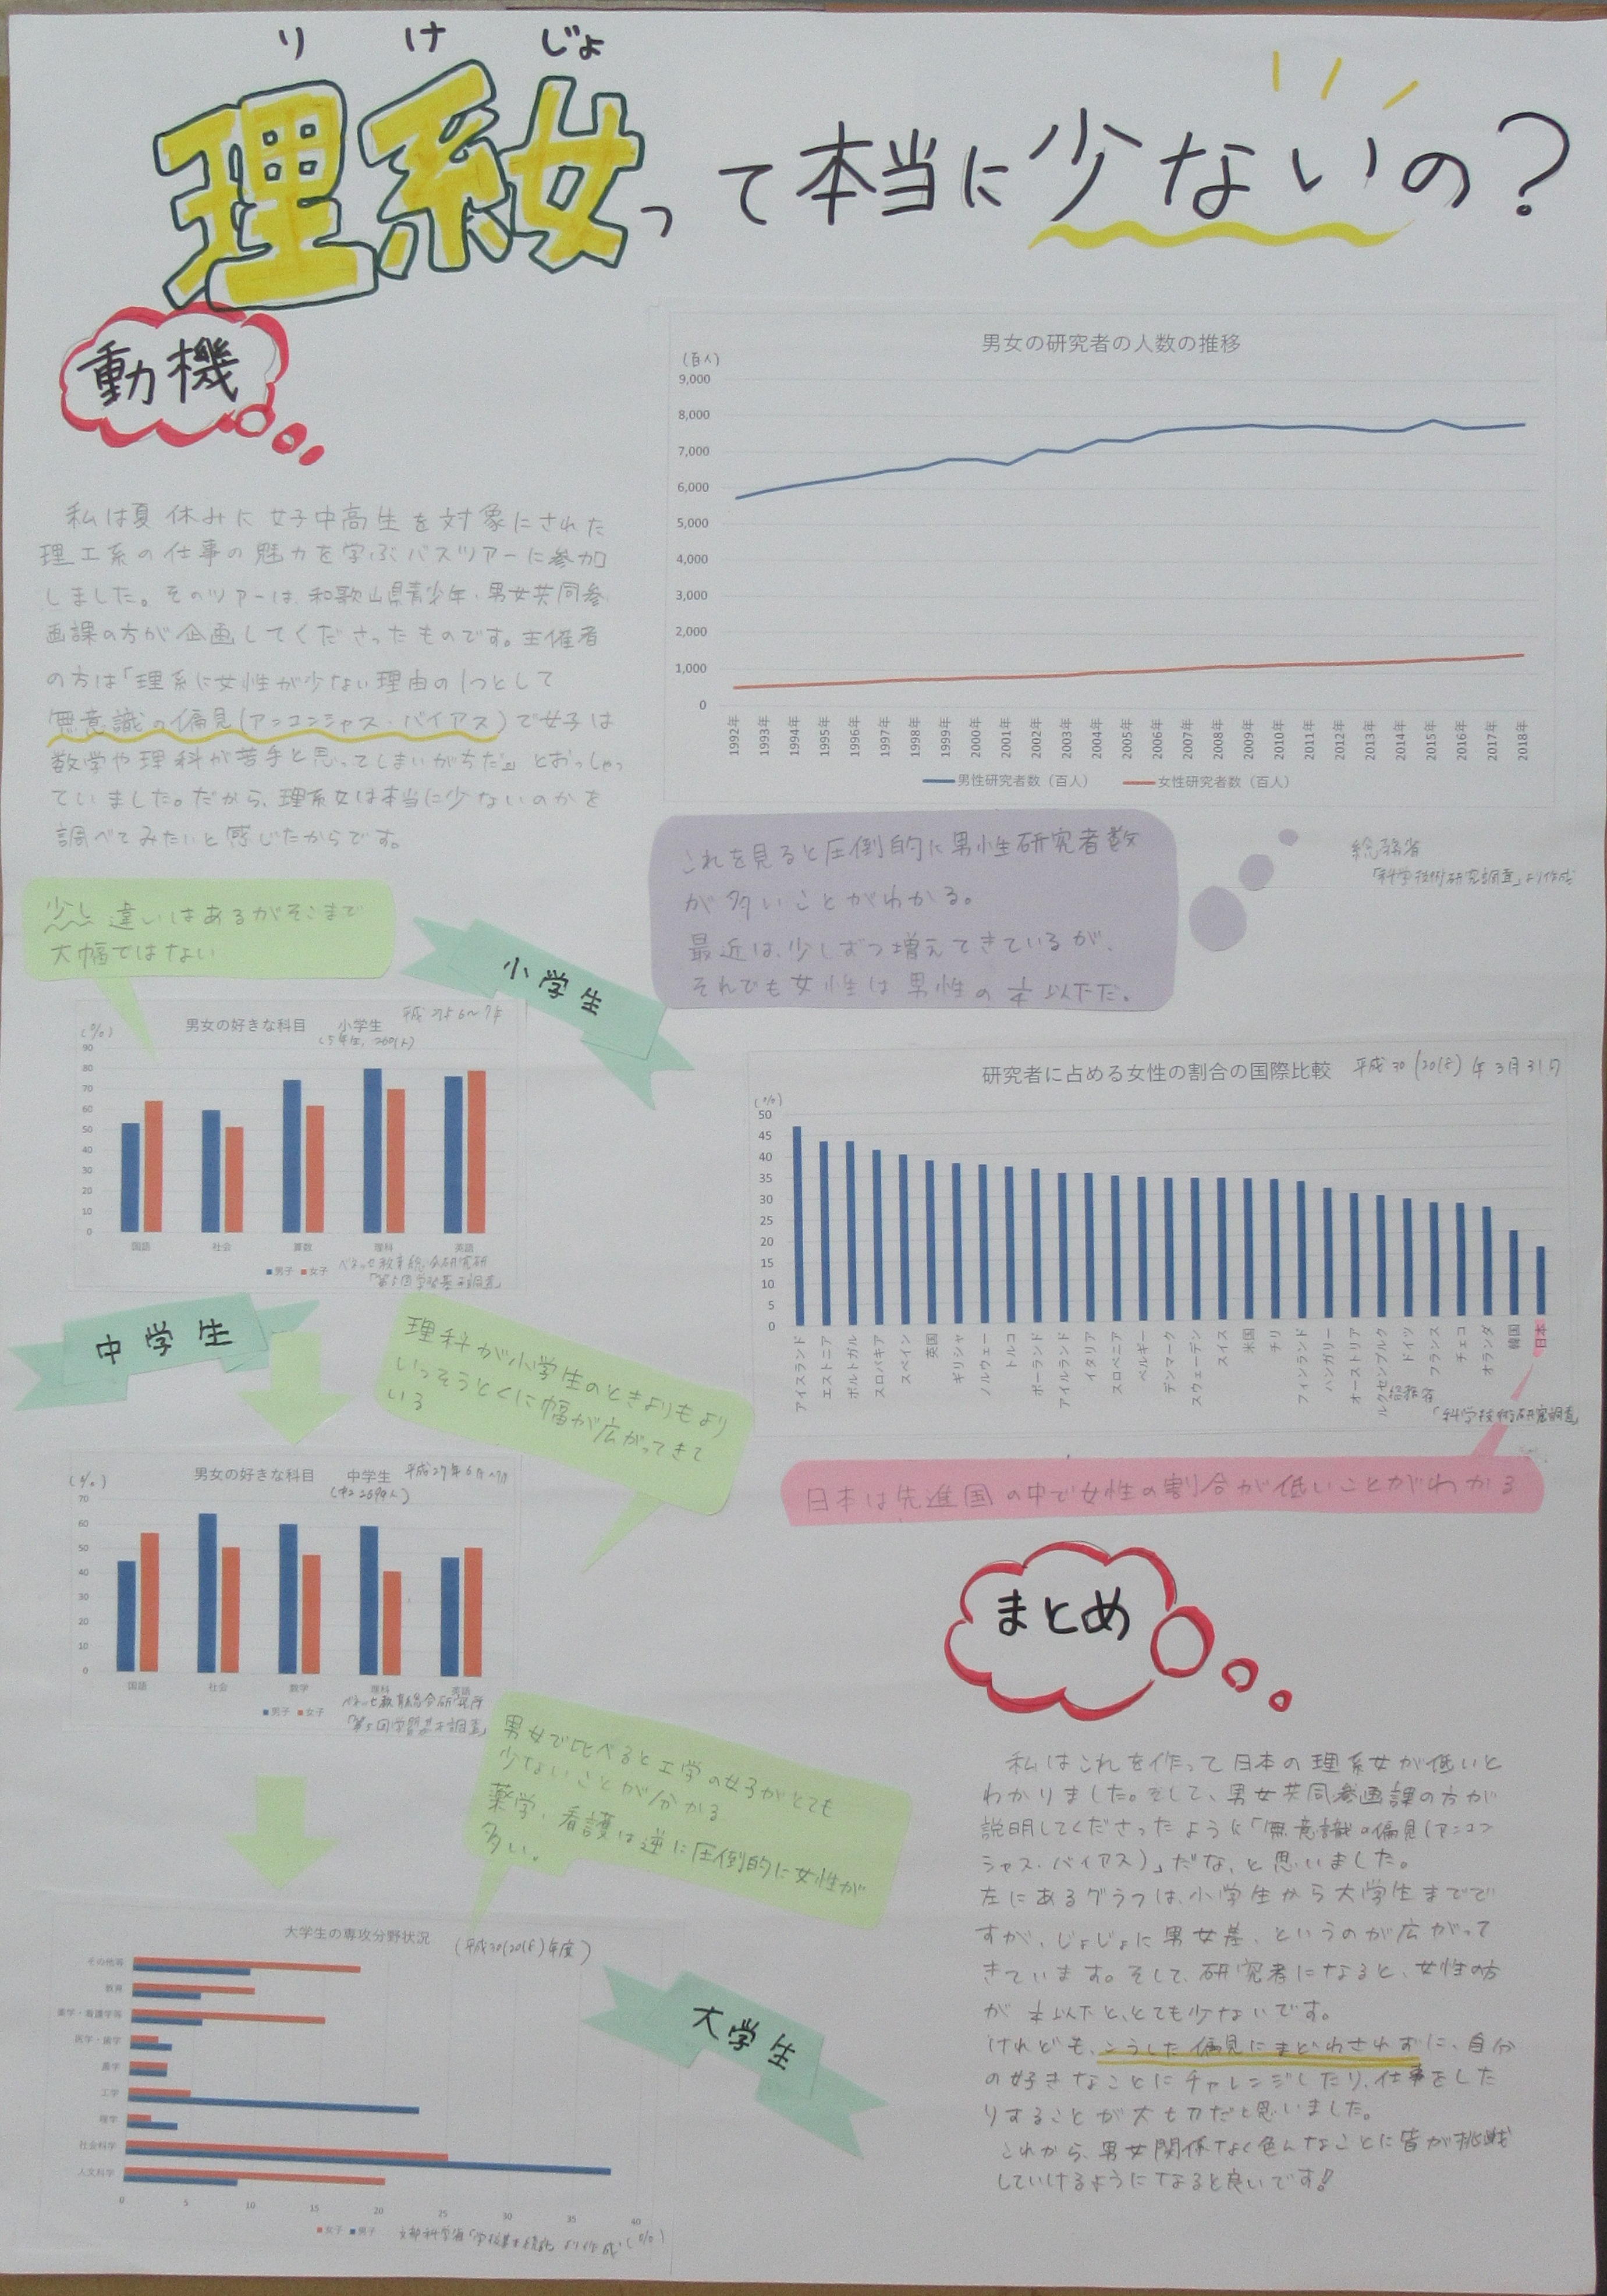 りけじょ
理系女って本当に少ないの?
動機
私は夏休みに女子中高生を対象にされた
理工系の仕事の魅力を学ぶバスツアーに参加
しました。そのツアーは、和歌山県青少年・男女共同参
画課の方が企画してくださったものです。主催者
の方は「理系に女性が少ない理由の1つとして
無意識の偏見(アンコンシャス・バイアス)で女子は
数学や理科が苦手と思ってしまいがちだ」とおっしゃっ
ていました。だから、理系女は本当に少ないのかを
調べてみたいと感じたからです。
男女の研究者の人数の推移
(百人)
9,000
8,000
7,000
6,000
5,000
4,000
3,000
2,000
1,000
0
1992年 1993年 1994年 1995年 1996年 1997年 1998年 1999年 2000年 2001年 2002年 2003年 2004年 2005年 2006年 2007年 2008年 2009年 2010年 2011年 2012年 2013年 2014年 2015年 2016年 2017年 2018年
男性研究者数(百人) 女性研究者数(百人)
総務省
「科学技術研究調査」より作成
これを見ると圧倒的に男性研究者数
が多いことがわかる。
最近は、少しずつ増えてきているが、
それでも女性は男性の 以下だ。
少し違いはあるがそこまで
大幅ではない
小学生
男女の好きな科目 小学生 平成27年6~7月
(5年生、2601人)
(%)
90
80
70
60
50
40
30
20
10
0
国語 社会 算数 理科 英語
男子 女子
ベネッセ教育総合研究所
「第5回学習基本調査」
研究者に占める女性の割合の国際比較 平成30(2018)年3月31日
(%)
50
45
40
35
30
25
20
15
10
5
0
アイスランド エストニア ポルトガル スロバキア スペイン 英国 ギリシャ ノルウェー トルコ ポーランド アイルランド イタリア スロベニア ベルギー デンマーク スウェーデン スイス 米国 チリ フィンランド ハンガリー オーストリア ルクセンブルク ドイツ フランス チェコ オランダ 韓国 日本
総務省
「科学技術研究調査」
日本は先進国の中で女性の割合が低いことがわかる
中学生
理科が小学生のときよりもより
いっそうとくに幅が広がってきて
いる
男女の好きな科目 中学生 平成27年6月~7月
(%)
70
60
50
40
30
20
10
0
国語 社会 数学 理科 英語
男子 女子
ベネッセ教育総合研究所
「第5回学習基本調査」
男女で比べると工学の女子がとても
少ないことが分かる
薬学、看護は逆に圧倒的に女性が
多い。
大学生
大学生の専攻分野状況 (平成30(2018)年度)
その他等
教育
薬学・看護学等
医学・歯学
農学
工学
理学
社会科学
人文科学
0 5 10 15 20 25 30 35 40
(%)
女子 男子
文部科学省「学校基本統計」より作成
まとめ
私はこれを作って日本の理系女が低いと
わかりました。そして、男女共同参画課の方が
説明してくださったように「無意識の偏見(アンコン
シャス・バイアス)」だな、と思いました。
左にあるグラフは、小学生から大学生までで
すが、じょじょに男女差、というのが広がって
きています。そして、研究者になると、女性の方
が 以下と、とても少ないです。
けれども、こうした偏見にまどわされずに、自分
の好きなことにチャレンジしたり、仕事をした
りすることが大切だと思いました。
これから、男女関係なく色んなことに皆が挑戦
していけるようになると良いです!!